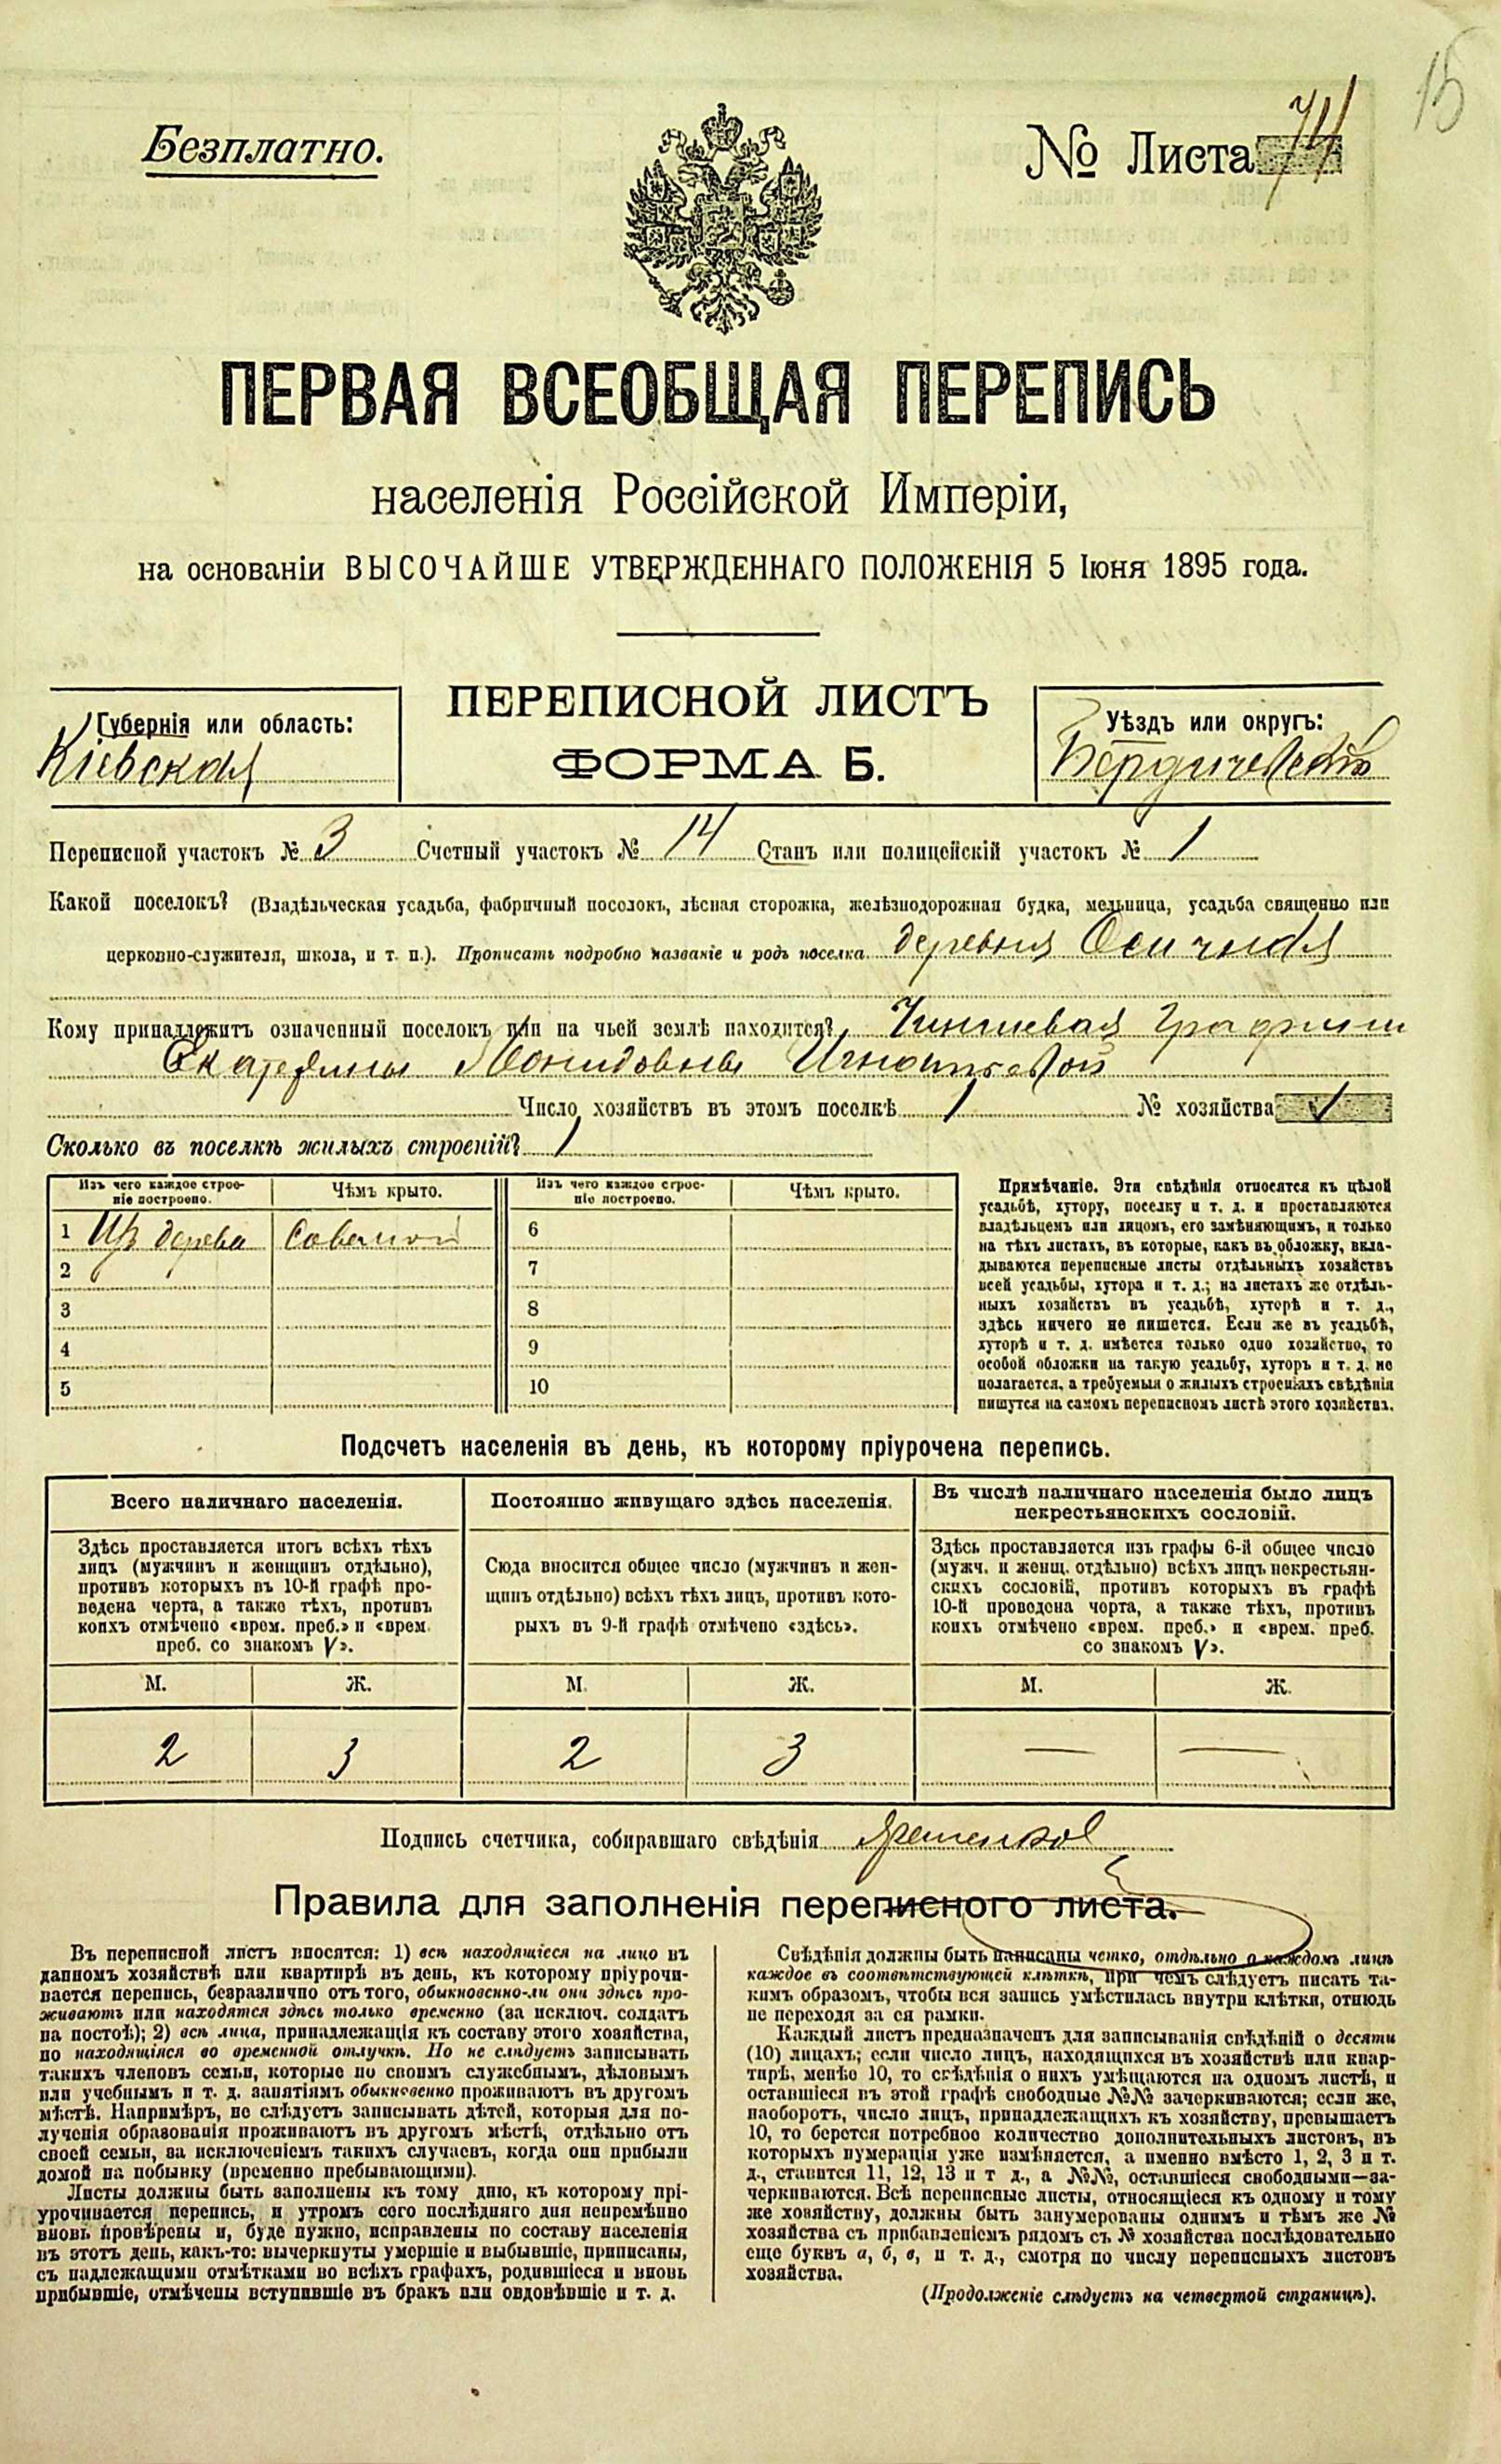 15
Безплатно.
№ Листа 74
ПЕРВАЯ ВСЕОБЩАЯ ПЕРЕПИСЬ
населенія Россійской Имперіи,
на основаніи ВЫСОЧАЙШЕ УТВЕРЖДЕННАГО ПОЛОЖЕНІЯ 5 Іюня 1895 года.
Губернія или область:
Кіевская
ПЕРЕПИСНОЙ ЛИСТЪ
ФОРМА Б.
Уѣздъ или округъ:
Бердичевскій
Переписной участокъ № 3 Счетный участокъ № 14 Станъ или полицейскій участокъ № 1
Какой поселокъ? (Владѣльческая усадьба, фабричный поселокъ, лѣсная сторожка, желѣзнодорожная будка, мельница, усадьба священно или
церковно-служителя, школа, и т. п.). Прописать подробно названіе и родъ поселка деревня Осичная
Кому принадлежитъ означенный поселокъ или на чьей землѣ находится? Чиншевая Графини
Екатерины Леонидовны Игнатьевой
Число хозяйствъ въ этомъ поселкѣ 1 № хозяйства 1
Сколько въ поселкѣ жилыхъ строеній? 1
Изъ чего каждое строе-
ніе построено.
Чѣмъ крыто.
Изъ чего каждое строе-
ніе построено.
Чѣмъ крыто.
1 Изъ дерева Соломой 6
2 7
3 8
4 9
5 10
Примѣчаніе. Эти свѣдѣнія относятся къ цѣлой
усадьбѣ, хутору, поселку и т. д. и проставляются
владѣльцемъ или лицомъ, его замѣняющимъ, и только
на тѣхъ листахъ, въ которые, какъ въ обложку, вкла-
дываются переписные листы отдѣльныхъ хозяйствъ
всей усадьбы, хутора и т. д.; на листахъ же отдѣль-
ныхъ хозяйствъ въ усадьбѣ, хуторѣ и т. д.,
здѣсь ничего не пишется. Если же въ усадьбѣ,
хуторѣ и т. д. имѣется только одно хозяйство, то
особой обложки на такую усадьбу, хуторъ и т. д. не
полагается, а требуемыя о жилыхъ строеніяхъ свѣдѣнія
пишутся на самомъ переписномъ листѣ этого хозяйства.
Подсчетъ населенія въ день, къ которому пріурочена перепись.
Всего наличнаго населенія.
Здѣсь проставляется итогъ всѣхъ тѣхъ
лицъ (мужчинъ и женщинъ отдѣльно),
противъ которыхъ въ 10-й графѣ про-
ведена черта, а также тѣхъ, противъ
коихъ отмѣчено «врем. преб.» и «врем.
преб. со знакомъ V».
Постоянно живущаго здѣсь населенія.
Сюда вносится общее число (мужчинъ и жен-
щинъ отдѣльно) всѣхъ тѣхъ лицъ, противъ кото-
рыхъ въ 9-й графѣ отмѣчено «здѣсь».
Въ числѣ наличнаго населенія было лицъ
некрестьянскихъ сословій.
Здѣсь проставляется изъ графы 6-й общее число
(мужч. и женщ. отдѣльно) всѣхъ лицъ некрестьян-
скихъ сословій, противъ которыхъ въ графѣ
10-й проведена черта, а также тѣхъ, противъ
коихъ отмѣчено «врем. преб.» и «врем. преб.
со знакомъ V».
М. Ж. М. Ж. М. Ж.
2 3 2 3 — —
Подпись счетчика, собиравшаго свѣдѣнія
Правила для заполненія переписного листа.
Въ переписной листъ вносятся: 1) всѣ находящіеся на лицо въ
данномъ хозяйствѣ или квартирѣ въ день, къ которому пріурочи-
вается перепись, безразлично отъ того, обыкновенно-ли они здѣсь про-
живаютъ или находятся здѣсь только временно (за исключ. солдатъ
на постоѣ); 2) всѣ лица, принадлежащія къ составу этого хозяйства,
но находящіяся во временной отлучкѣ. Но не слѣдуетъ записывать
такихъ членовъ семьи, которые по своимъ служебнымъ, дѣловымъ
или учебнымъ и т. д. занятіямъ обыкновенно проживаютъ въ другомъ
мѣстѣ. Напримѣръ, не слѣдуетъ записывать дѣтей, которыя для по-
лученія образованія проживаютъ въ другомъ мѣстѣ, отдѣльно отъ
своей семьи, за исключеніемъ такихъ случаевъ, когда они прибыли
домой на побывку (временно пребывающими).
Листы должны быть заполнены къ тому дню, къ которому прі-
урочивается перепись, и утромъ сего послѣдняго дня непремѣнно
вновь провѣрены и, буде нужно, исправлены по составу населенія
въ этотъ день, какъ-то: вычеркнуты умершіе и выбывшіе, приписаны,
съ надлежащими отмѣтками во всѣхъ графахъ, родившіеся и вновь
прибывшіе, отмѣчены вступившіе въ бракъ или овдовѣвшіе и т. д.
Свѣдѣнія должны быть написаны четко, отдѣльно о каждомъ лицѣ
каждое въ соотвѣтствующей клѣткѣ, при чемъ слѣдуетъ писать та-
кимъ образомъ, чтобы вся запись умѣстилась внутри клѣтки, отнюдь
не переходя за ея рамки.
Каждый листъ предназначенъ для записыванія свѣдѣній о десяти
(10) лицахъ; если число лицъ, находящихся въ хозяйствѣ или квар-
тирѣ, менѣе 10, то свѣдѣнія о нихъ умѣщаются на одномъ листѣ, и
оставшіеся въ этой графѣ свободные №№ зачеркиваются; если же,
наоборотъ, число лицъ, принадлежащихъ къ хозяйству, превышаетъ
10, то берется потребное количество дополнительныхъ листовъ, въ
которыхъ нумерація уже измѣняется, а именно вмѣсто 1, 2, 3 и т.
д., ставится 11, 12, 13 и т д., а №№, оставшіеся свободными—за-
черкиваются. Всѣ переписные листы, относящіеся къ одному и тому
же хозяйству, должны быть занумерованы однимъ и тѣмъ же №
хозяйства съ прибавленіемъ рядомъ съ № хозяйства послѣдовательно
еще буквъ а, б, в, и т. д., смотря по числу переписныхъ листовъ
хозяйства.
(Продолженіе слѣдуетъ на четвертой страницѣ).